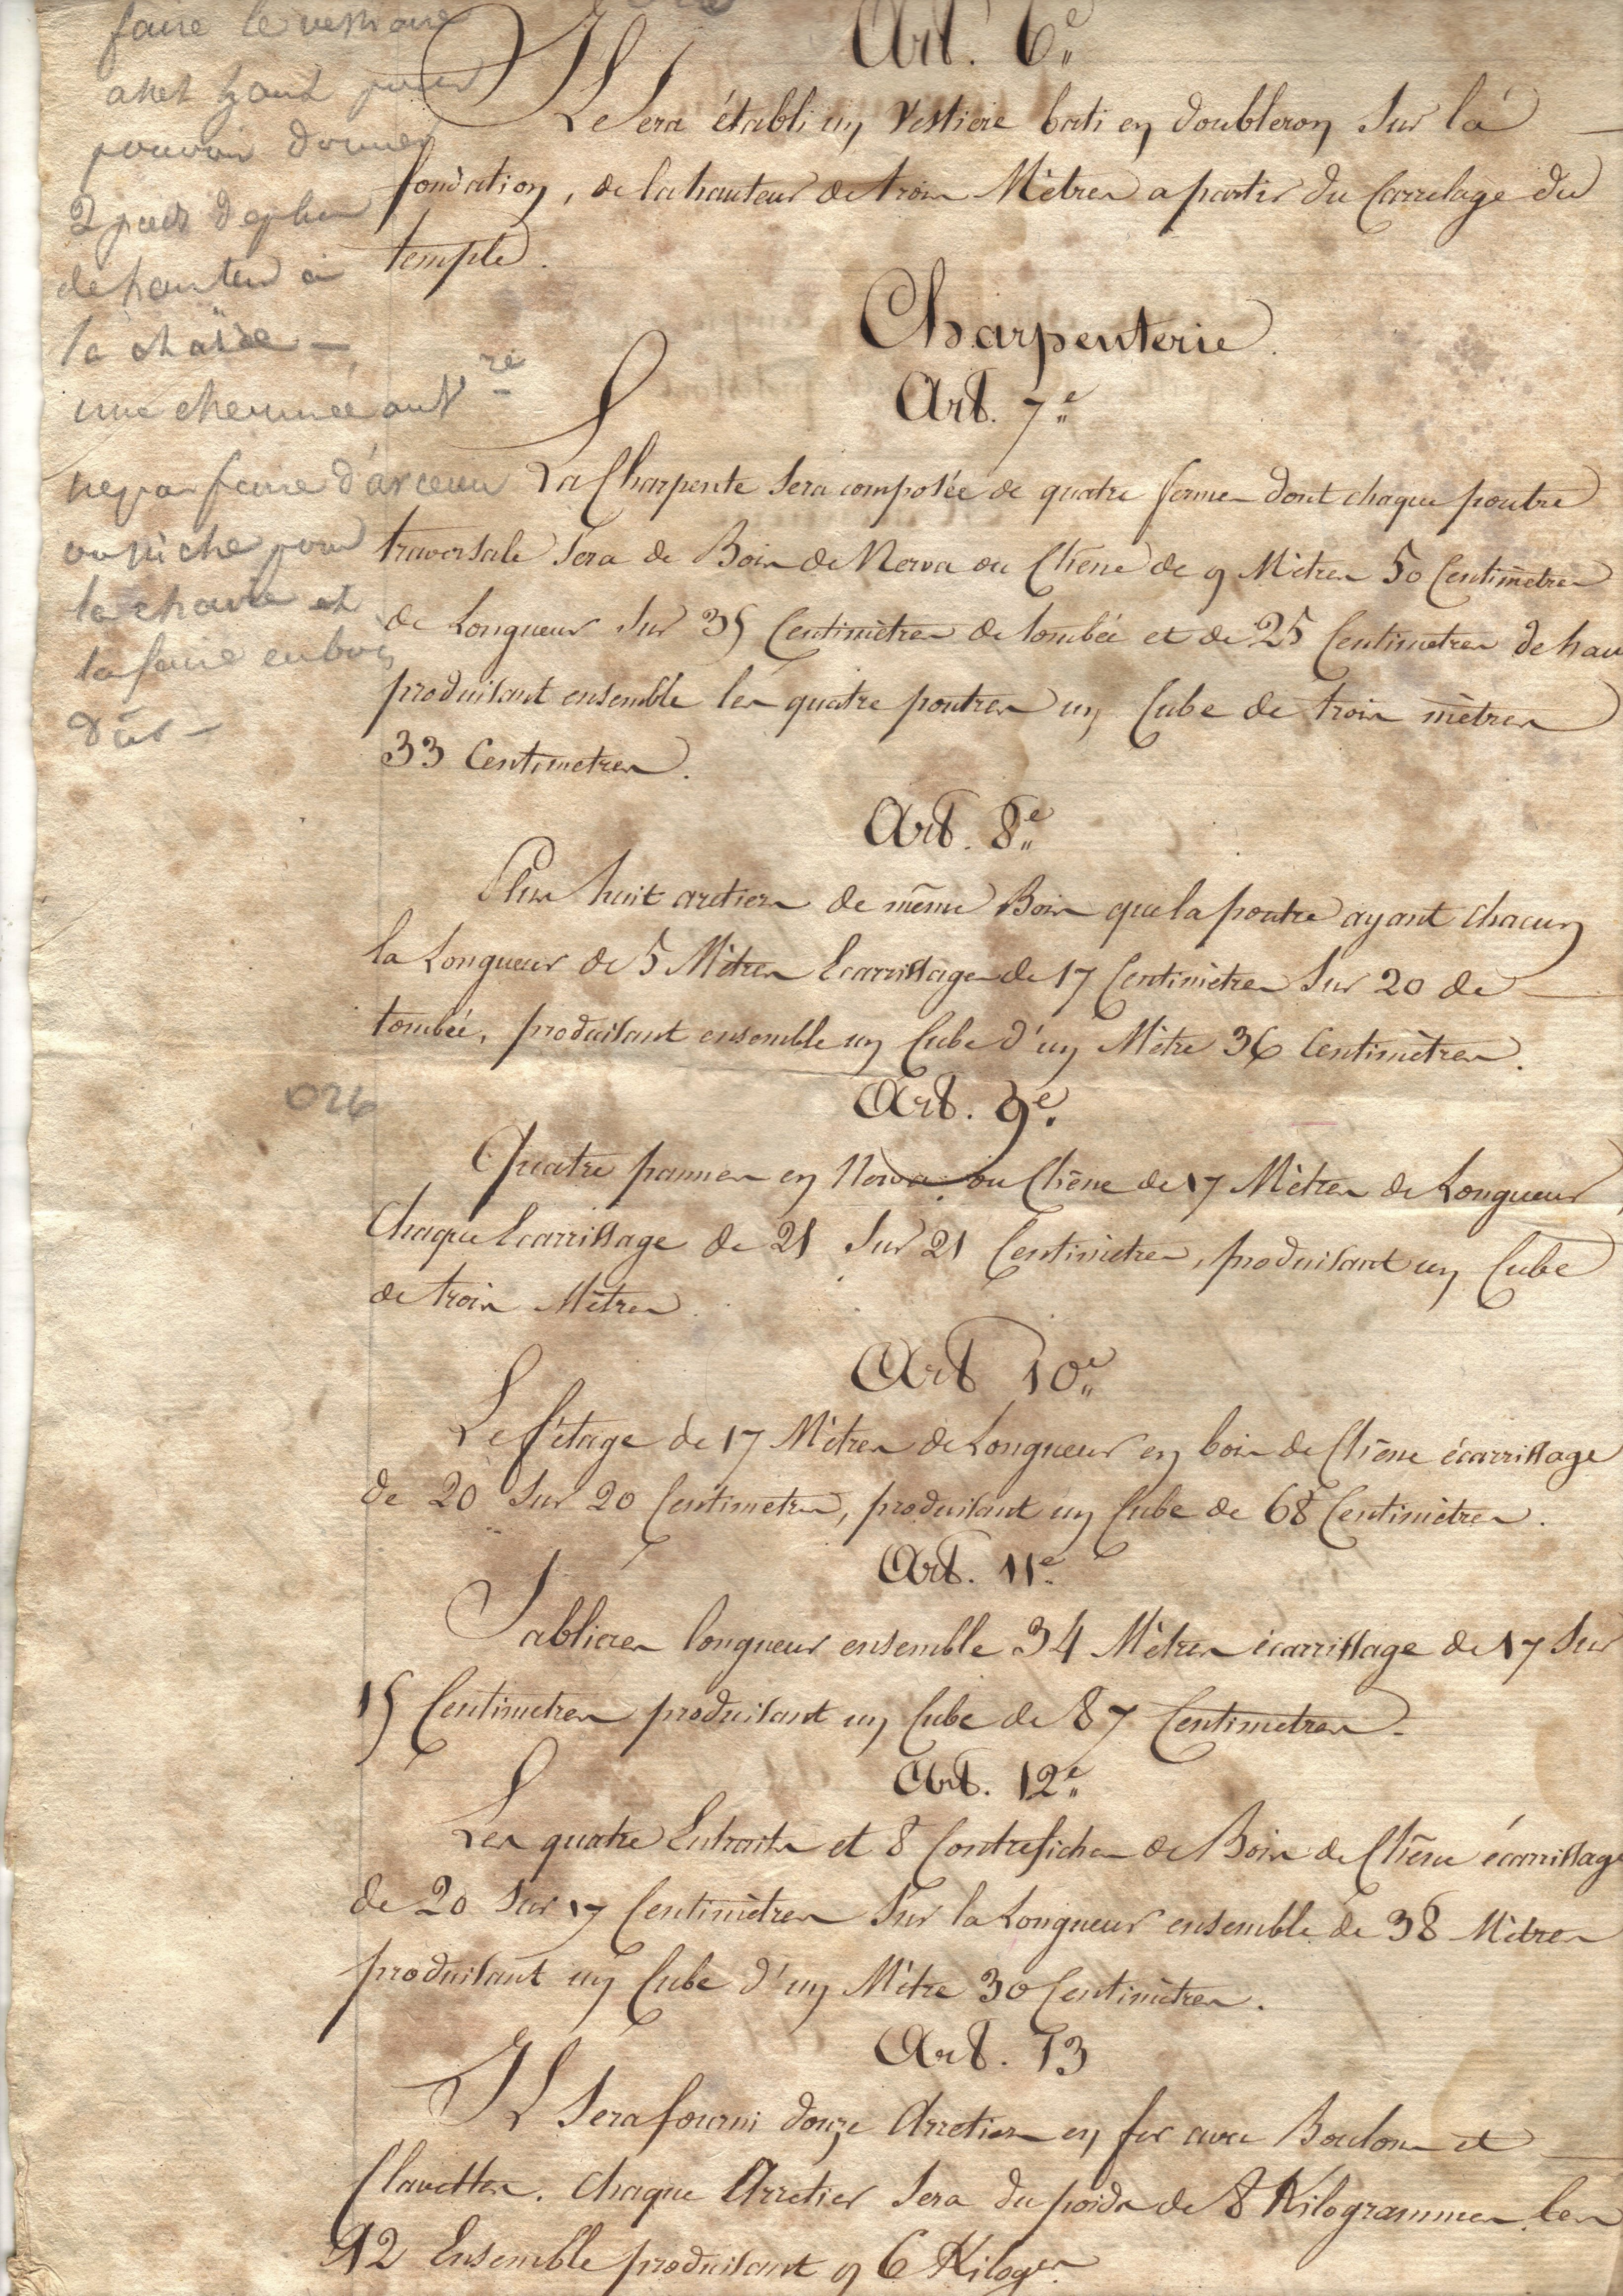 faire le vestiaire
assez haut pour
pouvoir donner
2 pieds de plus
de hauteur à
la chaire —
une cheminée au V.re
ne pas faire d'arceau
ou niche pour
la chaire et
la faire en bois
dûr —
026
Art. 6e
Il Sera établi un Vestiere bati en doubleron Sur la
fondation, de la hauteur de trois Mètres a partir du Carrelage du
temple.
Charpenterie.
Art. 7e
La Charpente Sera composée de quatre fermes dont chaque poutre
traversale Sera de Bois de Nerva ou Chêne de 9 Mètres 50 Centimètres
de Longueur Sur 35 Centimètres de tombée et de 25 Centimetres de hau
produisant ensemble les quatre poutres un Cube de trois mètres
33 Centimetres.
Art. 8e
Plus huit aretiers de même Bois que la poutre ayant chacun
la Longueur de 5 Mètres Ecarrissage de 17 Centimètres Sur 20 de
tombée, produisant ensemble un Cube d'un Mètre 36 Centimètres.
Art. 9e
Quatre pannes en Nerva ou Chêne de 17 Mètres de Longueur
Chaque Ecarrissage de 21 Sur 21 Centimètres, produisant un Cube
de trois Mètres.
Art 10e
Le fétage de 17 Mètres de Longueur en bois de Chêne écarrissage
de 20 Sur 20 Centimetres, produisant un Cube de 68 Centimètres.
Art. 11e
Sablieres longueur ensemble 34 Mètres écarrissage de 17 Sur
15 Centimetres produisant un Cube de 87 Centimetres.
Art. 12e
Les quatre Entraits et 8 Contrefiches de Bois de Chêne écarrissage
de 20 Sur 17 Centimètres Sur la Longueur ensemble de 38 Mètres
produisant un Cube d'un Mètre 30 Centimètres.
Art. 13
Il Sera fourni douze Arretiers en fer avec Boulons et
Clavettes. Chaque Arretier Sera du poids de 8 Kilogrammes les
12 Ensemble produisant 96 Kiloges